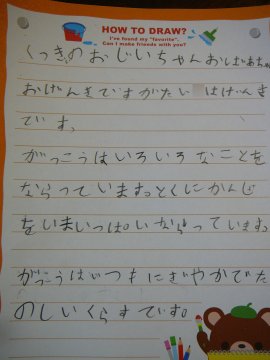 HOW TO DRAW?
I've found my "favorite".
Can I make friends with you?
くっきのおじいちゃんおばあちゃん
おげんきですか たい はげんき
です。
がっこうはいろいろなことを
ならっていますっとくにかんじ
をいまいっぱいならっています。
がっこうはいつもにぎやかでた
のしいくらすです。